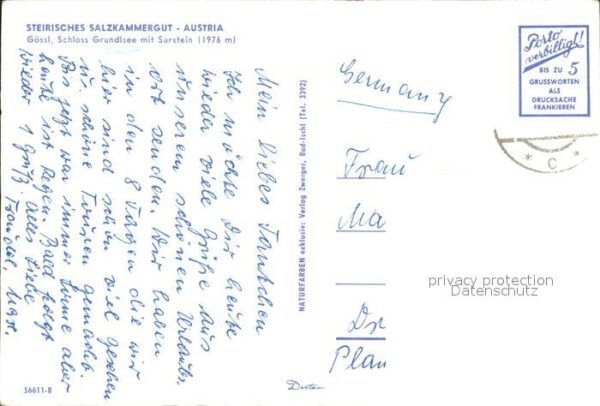 STEIRISCHES SALZKAMMERGUT - AUSTRIA
Gössl, Schloss Grundlsee mit Sarstein (1976 m)
Mein liebes Tantchen
Ich möchte Dir heute
wieder viele Grüße aus
unserem schönen Urlaubs-
ort senden. Wir haben
in den 8 Tagen die wir
hier sind schon viel gesehen
u. schöne Touren gemacht.
Bis jetzt war immer Sonne aber
heute ist Regen. Bald folgt
wieder 1 Gruß. Alles Liebe
Traudel,
56611-B
NATURFARBEN exklusive: Verlag Zwerger, Bad-Ischl (Tel. 3392)
Porto
verbilligt!
BIS ZU 5
GRUSSWORTEN
ALS
DRUCKSACHE
FRANKIEREN
* C *
Germany
Frau
Ma
Dr
Plau
privacy protection
Datenschutz